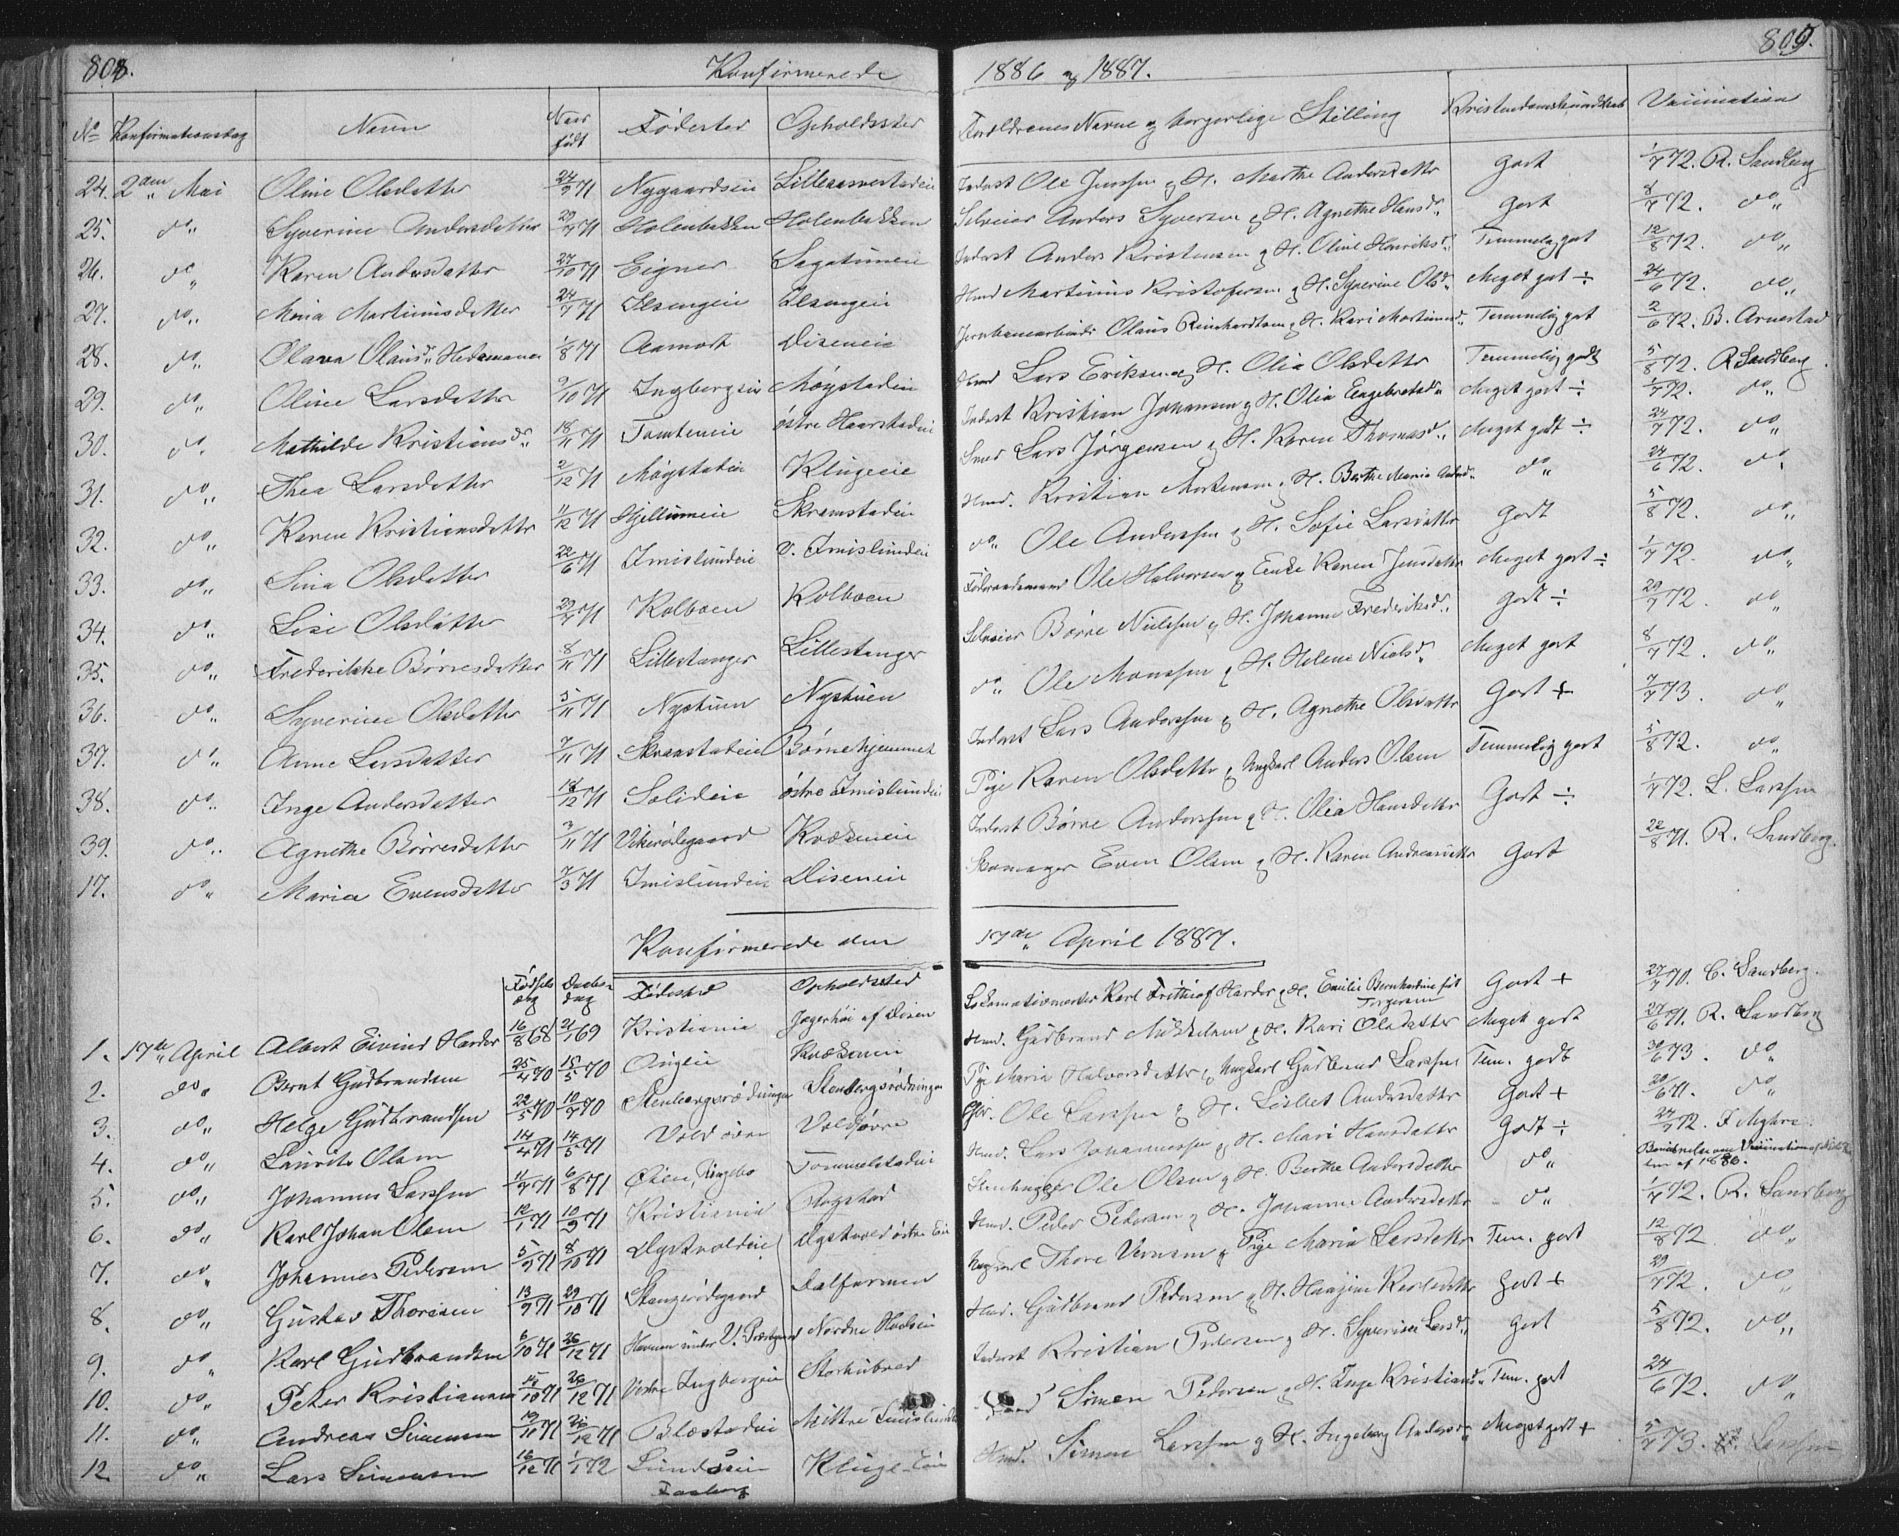 808. Konfirmerede 1886 og 1887. 809.
No Konfirmationsdag Navn Naar født Fødested Opholdssted Forældrenes Navne og borgerlige Stilling Kristendomskundskab Vaccination
24. 2den Mai Oline Olsdatter 24/2 71 Nygaardseie Lilleaarnestadeie Inderst Ole Jenssen og H. Marthe Andersdatter Godt 1/7 72. R. Sandberg
25. do Syverine Andersdatter 29/7 71 Holenbakken Holenbakken Selveier Anders Syversen og H. Agnethe Hansd. Godt 8/7 72. do
26. do Karen Andersdatter 27/10 71 Eigner Inderst Anders Kristensen og H. Oline Henriksd. Temmelig godt 12/8 72. do
27. do Mina Martinusdatter 24/7 71 Ilsengeie Ilsengeie Hmd Martinus Kristofersen og H. Syverine Olsd. Meget godt ÷ 24/6 72. do
28. do Olava Olausd. Hedemanen 1/8 71 Aamodt Diseneie Jernbanearbeider Olaus Reinhardtsen og H. Kari Martinusd. Temmelig godt 2/6 72. B. Arnestad
29. do Oline Larsdatter 9/10 71 Ingbergeie Møystadeie Hmd Lars Eriksen og H. Olia Olsdatter Temmelig godt 5/8 72. R. Sandberg
30. do Mathilde Kristiansd. 18/11 71 Tomteneie østre Haarstadeie Inderst Kristian Johansen og H. Olia Engebretsd. Meget godt ÷ 1/7 72. do
31. do Thea Larsdatter 2/12 71 Møystadeie Klugeeie Smed Lars Jørgensen og H. Karen Thomasd. Meget godt ÷ 24/7 72. do
32. do Karen Kristiansdatter 11/12 71 Hjellumeie Skramstadeie Hmd. Kristian Mortensen og H. Berthe Maria do 24/6 72. do
33. do Sina Olsdatter 22/6 71 Imislundeie v. Imislundeie do Ole Anderssen og H. Sofie Larsdatter Godt 5/8 72. do
34. do Lise Olsdatter 29/7 71 Kolboen Kolboen Føderaadsmand Ole Halvorsen og Enke Karen Jensdatter Meget godt ÷ 1/7 72. do
35. do Frederikke Børresdatter 8/11 71 Lillestanger Lillestanger Selveier Børre Nielssen og H. Johanne Frederiksd. Godt ÷ 29/7 72. do
36. do Syverine Olsdatter 5/11 71 Nystuen Nystuen do Ole Monssen og H. Helene Nielsd. Meget godt 8/7 72. do
37. do Anne Larsdatter 7/11 71 Skramstadeie Børnehjemmet Inderst Lars Anderssen og H. Agnethe Olsdatter Godt + 7/7 73. do
38. do Inge Andersdatter 18/12 71 Solideie østre Imislundeie Pige Karen Olsdatter og Ungkarl Anders Olsen Temmelig godt 5/8 72. do
39. do Agnethe Børresdatter 3/11 71 Vikerødegaard Kvækeneie Inderst Børre Anderssen og H. Olia Hansdatter Godt ÷ 1/7 72. L. Larssen
17. do Maria Evensdatter 7/3 71 Imislundeie Diseneie Skomager Even Olsen og H. Karen Andreasdatter Godt 22/8 71. R. Sandberg.
Konfirmerede den 17de April 1887.
Fødselsdag Daabsdag Fødested Opholdssted
1. 17de April Albert Eivind Harder 16/8 68 21/1 69 Kristiania Jegerhøi af Disen Lokomativmester Karl Frithiof Harder og H. Emilie Bernhardine fød Torgersen Godt + 27/7 70. C. Sandberg.
2. do Bernt Gudbrandsen 25/4 70 15/5 70 Kvækeneie Hmd. Gudbrand Mikkelsen og H. Kari Olsdatter Meget godt 27/6 71. R. Sandberg
3. do Helge Gudbrandsen 22/5 70 10/7 70 Stenbergsrødningen Stenbergsrødningen Pige Maria Halvorsdatter og Ungkarl Gudbrand Larssen Tem. godt 30/6 73. do
4. do Laurits Olsen 14/4 71 14/5 71 Vold øvre Vold øvre Gbr. Ole Larssen og H. Lisbet Andersdatter Godt + 20/6 71. do
5. do Johannes Larssen 11/7 71 6/8 71 Øien, Ringebo Tommelstadeie Hmd. Lars Johannessen og H. Mari Hansdatter Godt ÷ 24/7 72. F. Myhre
6. do Karl Johan Olsen 12/1 71 10/9 71 Kristiania Rogstad Stenhugger Ole Olsen og H. Berthe Andersdatter do Bevidnelse om Vaccination af 1886.
7. do Johannes Pedersen 5/9 71 8/10 71 Dystvoldeie Dystvold østre Eie Hmd. Peder Pedersen og H. Johanne Andersdatter do 1/7 72. R. Sandberg
8. do Gustav Thoresen 13/9 71 29/10 71 Stangerødegaard Dalfarmen Ungkarl Thore Verнsen og Pige Maria Larsdatter Tem. godt 12/8 72. do
9. do Karl Gudbrandsen 6/10 71 26/12 71 Havnen under V. Præstgaard Nordre Hoelseie Hmd. Gudbrand Pedersen og H. Haagine Karlsdatter Godt + 29/7 72. do
10. do Peter Kristiansen 15/10 71 26/12 71 Vestre Ingbergeie Storhubred Inderst Kristian Pedersen og H. Syverine Larsd. Godt 5/8 72. do
11. do Andreas Simensen 19/11 71 26/12 71 Blæstadeie Mittre Imislundeie Simen Pedersen og H. Inge Kristiansd. Tem. godt 24/6 72. do
12. do Lars Simensen 16/12 71 1/1 72 Lundseie Kluge-Eie Hmd. Simen Larssen og H. Ingeborg Andersd. Meget godt + 5/7 73. Larssen